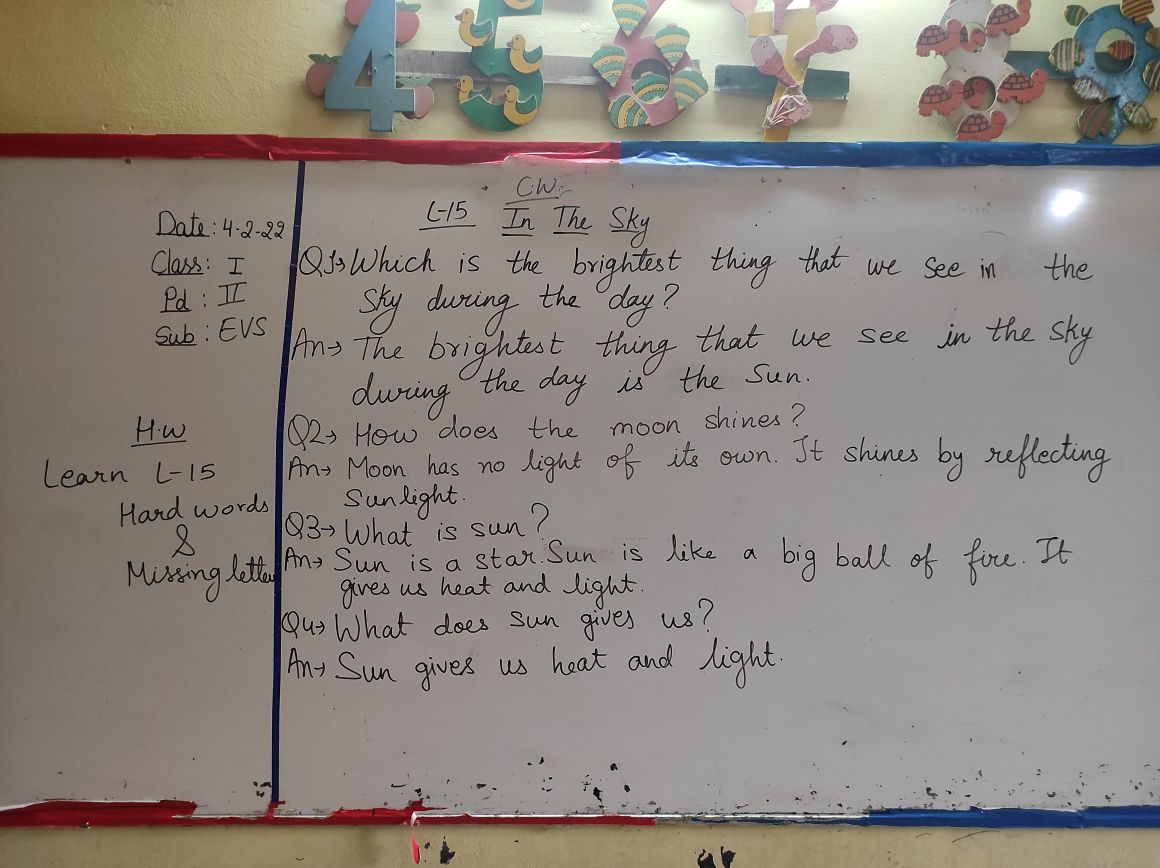 4 5 6 7 8
C.W:-
L-15 In The Sky
Date: 4-2-22
Class: I
Pd: II
Sub: EVS
H.W
Learn L-15
Hard words
&
Missing letter
Q1→ Which is the brightest thing that we see in the
sky during the day?
An→ The brightest thing that we see in the sky
during the day is the Sun.
Q2→ How does the moon shines?
An→ Moon has no light of its own. It shines by reflecting
Sunlight.
Q3→ What is sun?
An→ Sun is a star. Sun is like a big ball of fire. It
gives us heat and light.
Q4→ What does sun gives us?
An→ Sun gives us heat and light.